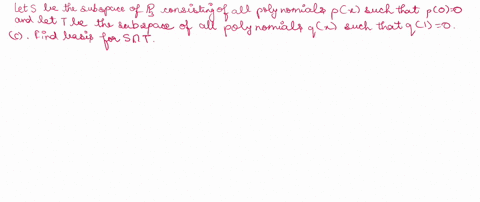 Let S be the subspace of P3 consisting of all polynomials p(x) such that p(0)=0
and let T be the subspace of all polynomials q(x) such that q(1)=0.
(c). Find basis for S∩T.